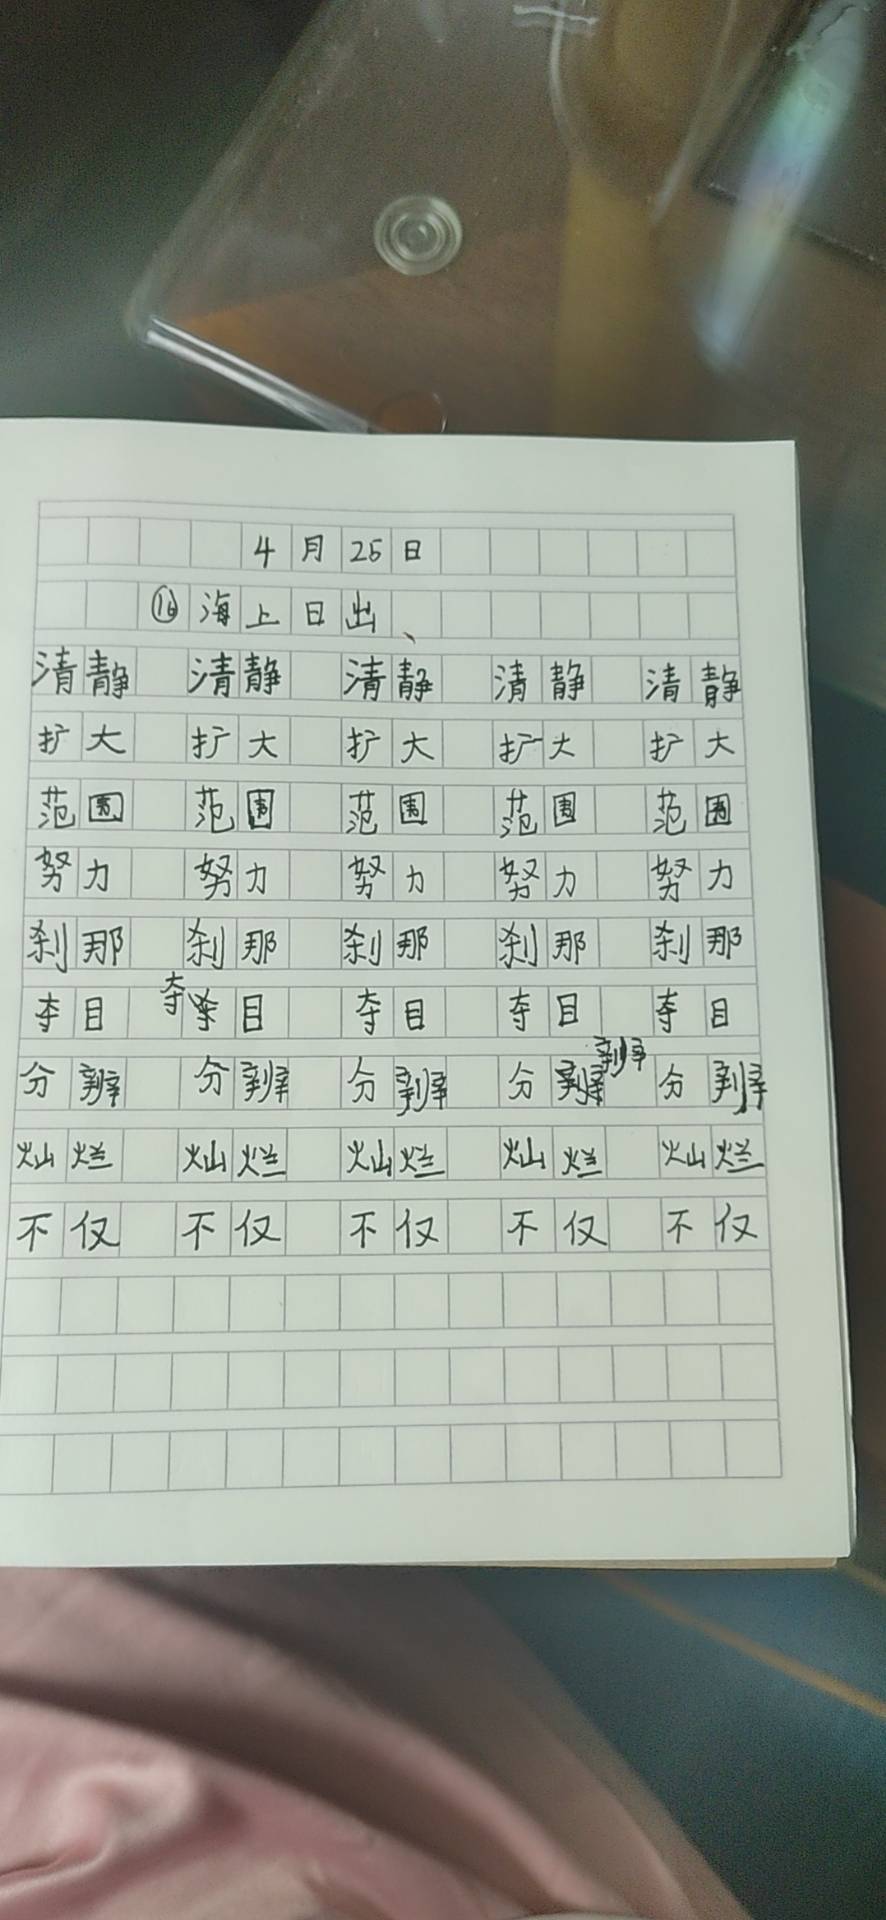 4月25日
⑯海上日出
清静 清静 清静 清静 清静
扩大 扩大 扩大 扩大 扩大
范围 范围 范围 范围 范围
努力 努力 努力 努力 努力
刹那 刹那 刹那 刹那 刹那
夺目 夺目 夺目 夺目 夺目
分辨 分辨 分辨 分辨 分辨
灿烂 灿烂 灿烂 灿烂 灿烂
不仅 不仅 不仅 不仅 不仅